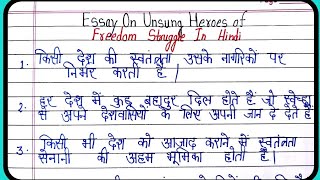 Essay On Unsung Heroes of
Freedom Struggle In Hindi
1. किसी देश की स्वतंत्रता उसके नागरिकों पर
निर्भर करती है।
2. हर देश में कुछ बहादुर दिल होते हैं जो स्वेच्छा
से अपने देशवासियों के लिए अपनी जान दे देते है
3. किसी भी देश को आजाद कराने में स्वतंत्रता
सेनानी की अहम भूमिका होती है।